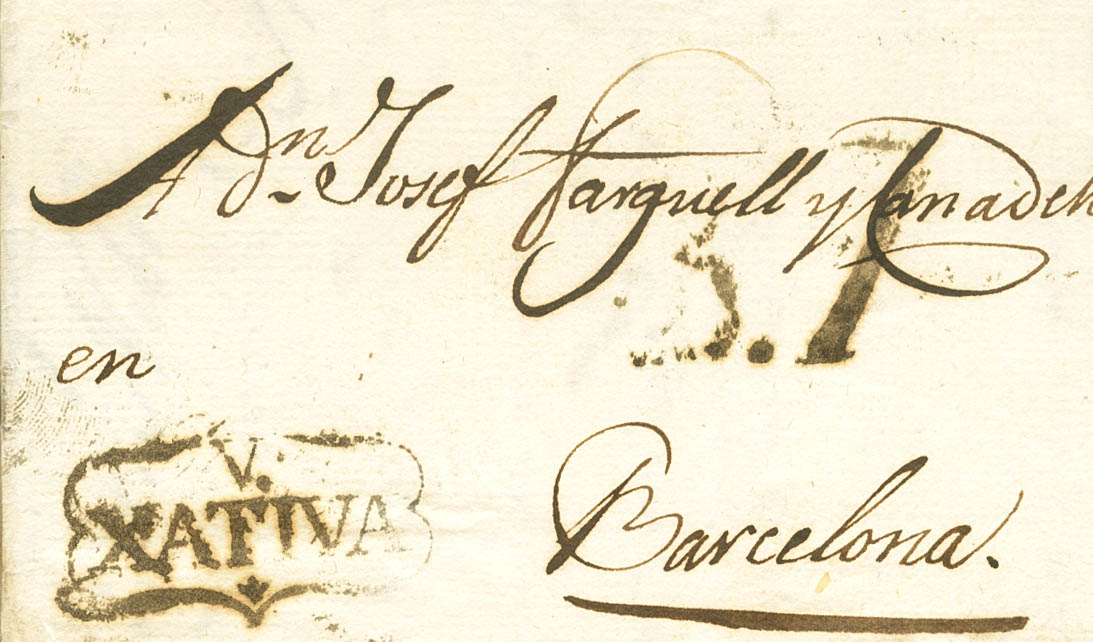 A Dn. Josef Farguell y Canadell
5.1
en
V.
XATIVA
Barcelona.